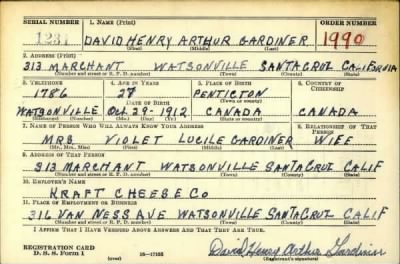 SERIAL NUMBER 1. NAME (Print) ORDER NUMBER
1231 DAVID HENRY ARTHUR GARDINER 1990
(First) (Middle) (Last)
2. ADDRESS (Print)
313 MARCHANT WATSONVILLE SANTA CRUZ CALIFORNIA
(Number and street or R. F. D. number) (Town) (County) (State)
3. TELEPHONE 4. AGE IN YEARS 5. PLACE OF BIRTH 6. COUNTRY OF CITIZENSHIP
1786 27 PENTICTON
DATE OF BIRTH (Town or county)
WATSONVILLE Oct 29-1912 CANADA CANADA
7. NAME OF PERSON WHO WILL ALWAYS KNOW YOUR ADDRESS 8. RELATIONSHIP OF THAT PERSON
MRS VIOLET LUCILE GARDINER WIFE
(Mr., Mrs., Miss) (First) (Middle) (Last)
9. ADDRESS OF THAT PERSON
313 MARCHANT WATSONVILLE SANTA CRUZ CALIF
(Number and street or R. F. D. number) (Town) (County) (State)
10. EMPLOYER'S NAME
KRAFT CHEESE CO
11. PLACE OF EMPLOYMENT OR BUSINESS
316 VAN NESS AVE WATSONVILLE SANTA CRUZ CALIF
(Number and street or R. F. D. number) (Town) (County) (State)
I AFFIRM THAT I HAVE VERIFIED ABOVE ANSWERS AND THAT THEY ARE TRUE.
REGISTRATION CARD
D. S. S. Form 1 (over) David Henry Arthur Gardiner